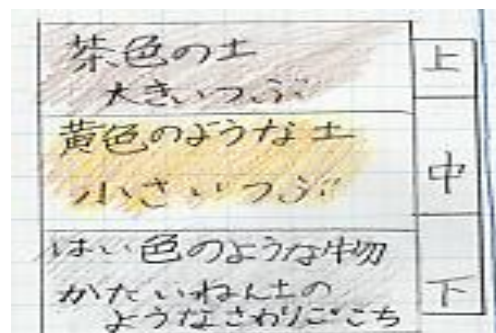 茶色の土
大きいつぶ
上
黄色のような土
小さいつぶ
中
はい色のような物
かたいねん土の
ようなさわりごこち
下